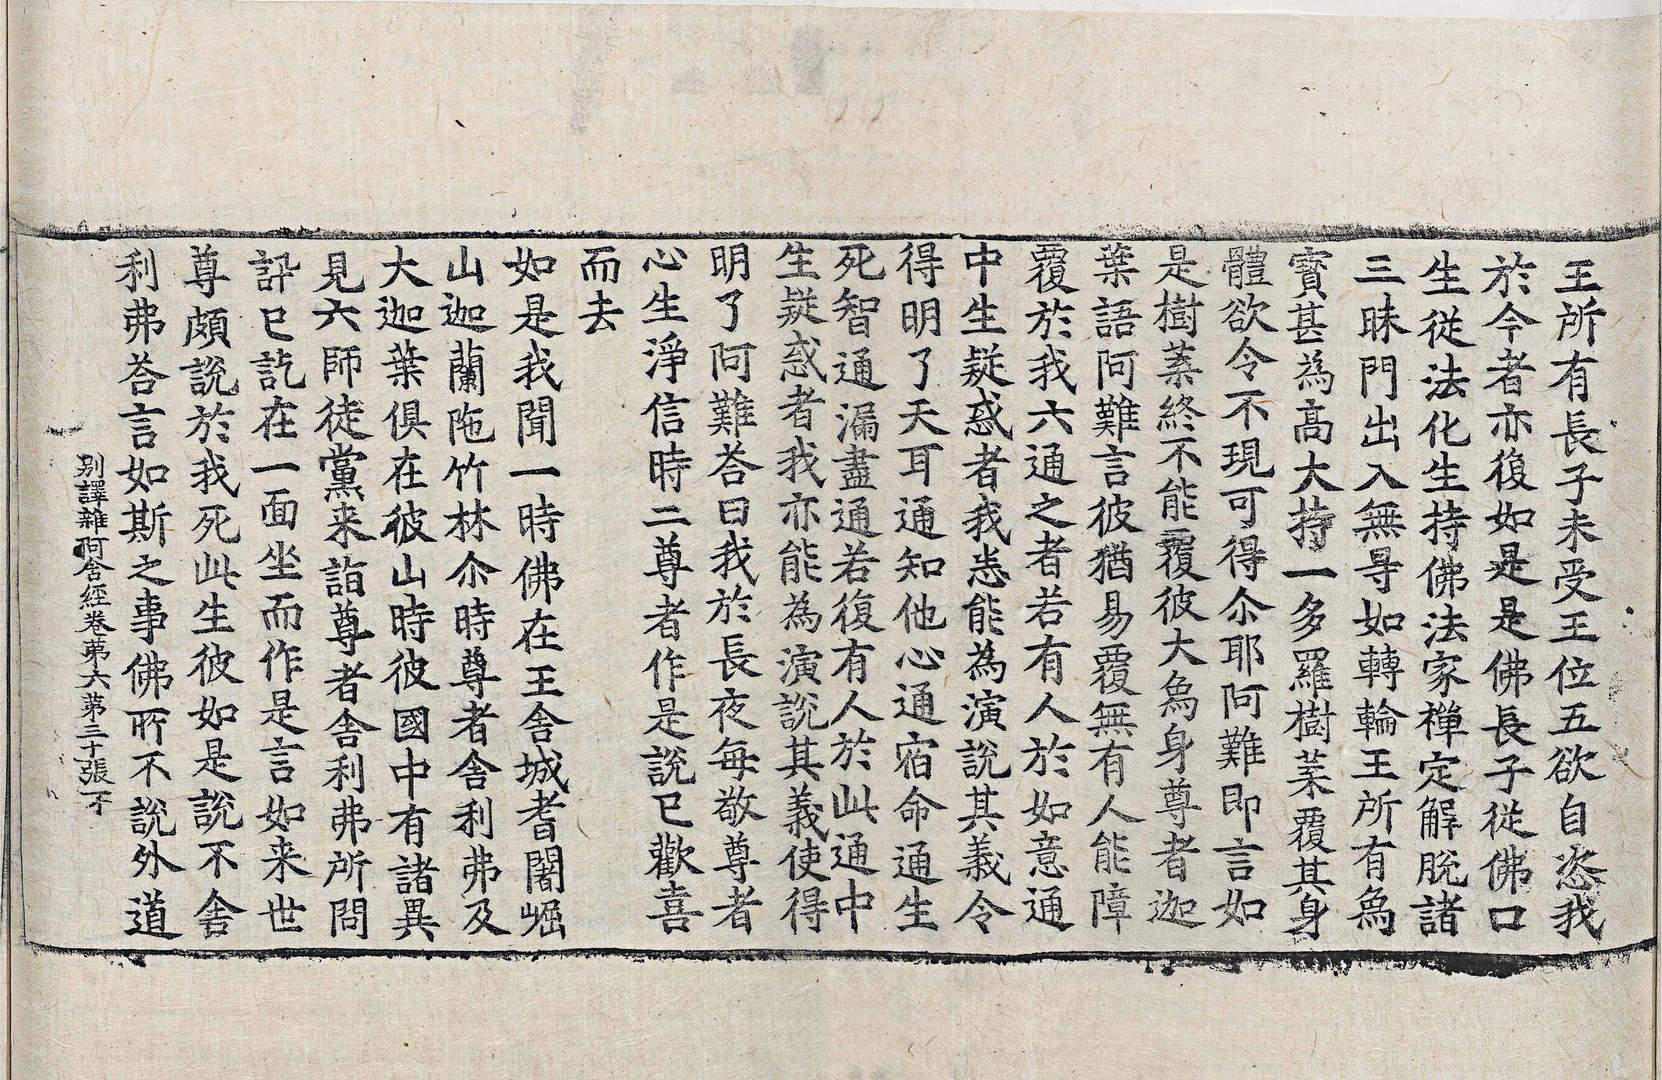 王所有長子未受王位五欲自恣我
於今者亦復如是是佛長子從佛口
生從法化生持佛法家禪定解脫諸
三昧門出入無㝵如轉輪王所有為
寶甚為高大持一多羅樹葉覆其身
體欲令不現可得尒耶阿難即言如
是樹葉終不能覆彼大為身尊者迦
葉語阿難言彼猶易覆無有人能障
覆於我六通之者若有人於如意通
中生疑惑者我悉能為演說其義令
得明了天耳通知他心通宿命通生
死智通漏盡通若復有人於此通中
生疑惑者我亦能為演說其義使得
明了阿難荅曰我於長夜每敬尊者
心生淨信時二尊者作是說已歡喜
而去
如是我聞一時佛在王舍城耆闍崛
山迦蘭陁竹林尒時尊者舍利弗及
大迦葉俱在彼山時彼國中有諸異
見六師徒黨来詣尊者舍利弗所問
訊已訖在一面坐而作是言如来世
尊頗說於我死此生彼如是說不舍
利弗荅言如斯之事佛所不說外道
别譯雜阿含經卷第六第三十張 不